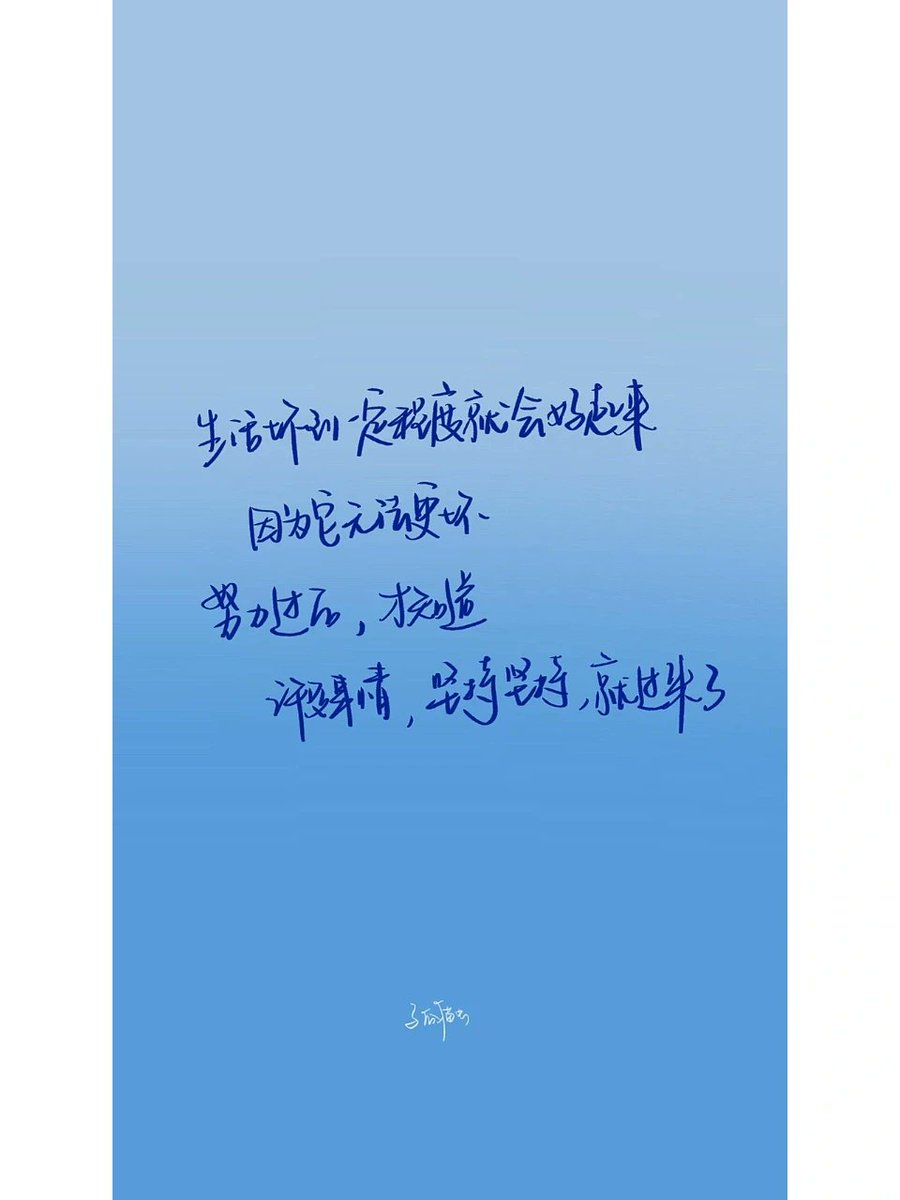 生活坏到一定程度就会好起来
因为它无法更坏
努力过后，才知道
许多事情，坚持坚持，就过来了